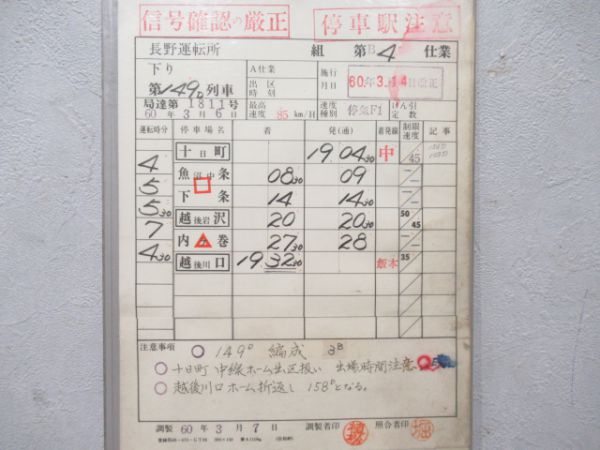 信号確認の厳正 停車駅注意
長野運転所 組 第B4仕業
下り A仕業 施行月日 60年3月14日改正
第149D列車 出区時刻
局達第1811号 60年3月6日 最高速度 85km/H 速度種別 停気F1 けん引定数
運転時分 停車場名 着 発(通) 着発線 制限速度 記事
十日町 19 04 30 中 45
4 魚沼中条 08 30 09
5 下条 14 14 30
5 30 越後岩沢 20 20 30 50 45
7 内ヶ巻 27 30 28
4 30 越後川口 19 32 30 飯本 35
注意事項 149D 編成 2B
十日町 中線ホーム出区扱い 出場時間注意
越後川口ホーム折返し 158Dとなる。
調製 60年3月7日 調製者印 照合者印 堀